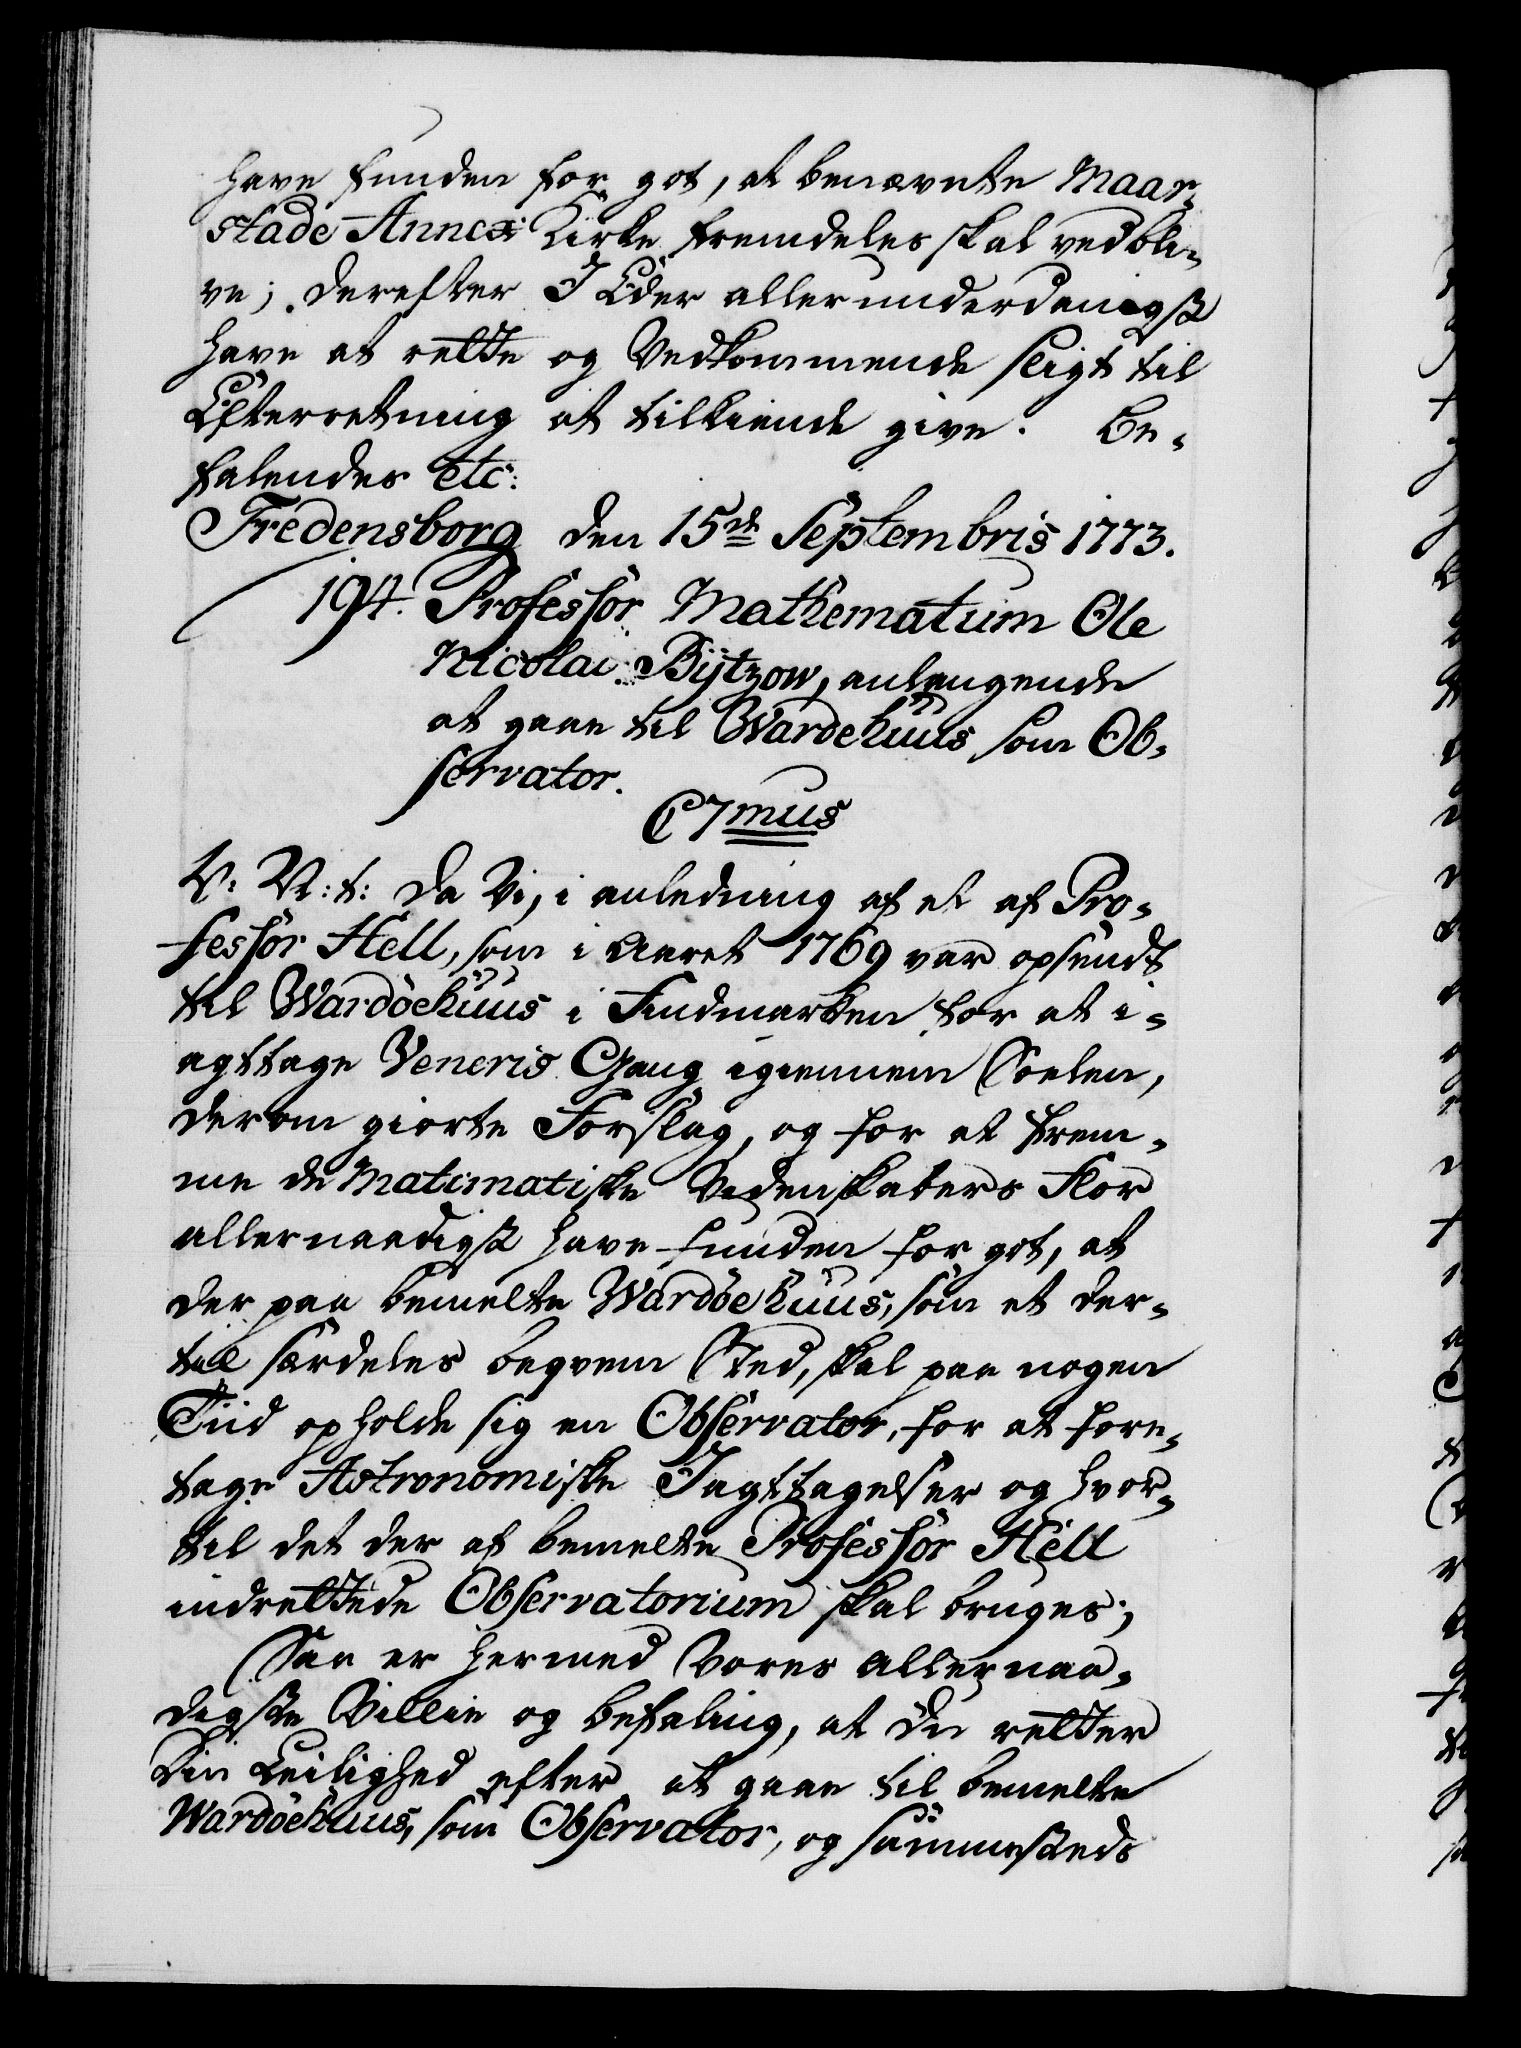 have funden for got, at benævnte Maar-
stade Annex Kirke fremdeles skal vedbli-
ve; derefter I Eder allerunderdanigst
have at rette og Vedkommende sligt til
Efterretning at tilkiende give. Be-
falendes etc:
Fredensborg den 15de Septembris 1773.
194. Professor Mathematum Ole
Nicolai Bÿtzow, anlangende
at gaae til Wardehuus som Ob-
servator.
C7mus
V: V: t: Da Vi, i anledning af et af Pro-
fessor Hell, som i Aaret 1769 var opsendt
til Wardöehuus i Findmarken for at i-
agttage Veneris Gang igiennem Soelen,
derom giorte Forslag, og for at frem-
me de Matimatiske Videnskabers Flor
allernaadigst have funden for got, at
der paa bemelte Wardöehuus, som et der-
til særdeles beqvem Sted, skal paa nogen
Tiid opholde sig en Observator, for at fore-
tage Astronomiske Iagttagelser og hvor-
til det der af bemelte Professor Hell
indrettede Observatorium skal bruges;
Saa er hermed Vores allernaa-
digste Villie og befaling, at du retter
Din Leilighed efter at gaae til bemelte
Wardöehuus, som Observator, og sammesteds